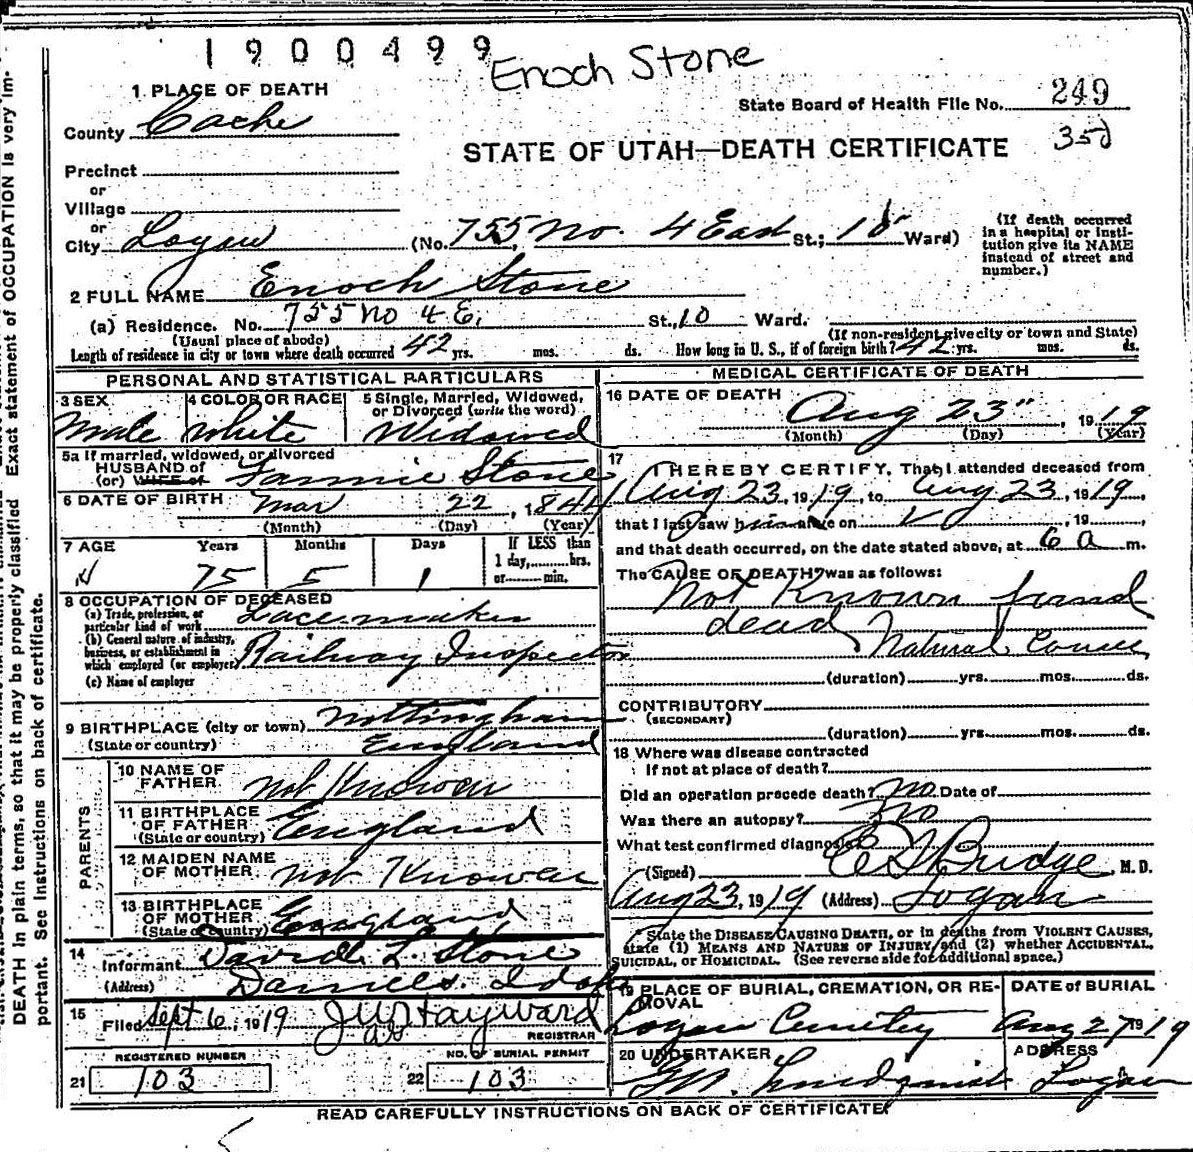 1900499
Enoch Stone
1 PLACE OF DEATH
State Board of Health File No. 249
County Cache
350
STATE OF UTAH—DEATH CERTIFICATE
Precinct
or
Village
or
City Logan (No. 755, No. 4 East St.; 10 Ward)
(If death occurred
in a hospital or insti-
tution give its NAME
instead of street and
number.)
2 FULL NAME Enoch Stone
(a) Residence. No. 755 No 4 E. St., 10 Ward.
(Usual place of abode) (If non-resident give city or town and State)
Length of residence in city or town where death occurred 42 yrs. mos. ds. How long in U. S., if of foreign birth? 42 yrs. mos. ds.
PERSONAL AND STATISTICAL PARTICULARS
3 SEX
Male
4 COLOR OR RACE
White
5 Single, Married, Widowed,
or Divorced (write the word)
Widowed
5a If married, widowed, or divorced
HUSBAND of
(or) WIFE of Fannie Stone
6 DATE OF BIRTH Mar 22, 1844
(Month) (Day) (Year)
7 AGE Years Months Days If LESS than
1 day,........hrs.
or........min.
75 5 1
8 OCCUPATION OF DECEASED
(a) Trade, profession, or
particular kind of work Lace maker
(b) General nature of industry,
business, or establishment in
which employed (or employer) Railway Inspector
(c) Name of employer
9 BIRTHPLACE (city or town) Nottingham
(State or country) England
PARENTS
10 NAME OF
FATHER not Knowen
11 BIRTHPLACE
OF FATHER England
(State or country)
12 MAIDEN NAME
OF MOTHER not Knowen
13 BIRTHPLACE
OF MOTHER England
(State or country)
14
Informant David L. Stone
(Address) Daniels. Idaho
15
Filed Sept 6, 1919 J W Hayward
REGISTRAR
REGISTERED NUMBER
21 103
NO. OF BURIAL PERMIT
22 103
MEDICAL CERTIFICATE OF DEATH
16 DATE OF DEATH Aug 23", 1919
(Month) (Day) (Year)
17
I HEREBY CERTIFY, That I attended deceased from
Aug 23, 1919, to Aug 23, 1919,
that I last saw him alive on , 19 ,
and that death occurred, on the date stated above, at 6 a m.
The CAUSE OF DEATH was as follows:
Not Known found
dead, Natural Causes
(duration) yrs. mos. ds.
CONTRIBUTORY
(SECONDARY)
(duration) yrs. mos. ds.
18 Where was disease contracted
If not at place of death?
Did an operation precede death? no. Date of
Was there an autopsy? no
What test confirmed diagnosis
(Signed) Budge, M. D.
Aug 23, 1919 (Address) Logan
State the DISEASE CAUSING DEATH, or in deaths from VIOLENT CAUSES,
state (1) MEANS AND NATURE OF INJURY, and (2) whether ACCIDENTAL,
SUICIDAL, or HOMICIDAL. (See reverse side for additional space.)
19 PLACE OF BURIAL, CREMATION, OR RE-
MOVAL
Logan Cemetery
DATE of BURIAL
Aug 27 1919
20 UNDERTAKER
Lundquist
ADDRESS
Logan
READ CAREFULLY INSTRUCTIONS ON BACK OF CERTIFICATE
DEATH in plain terms, so that it may be properly classified Exact statement of OCCUPATION is very im-
portant. See instructions on back of certificate.